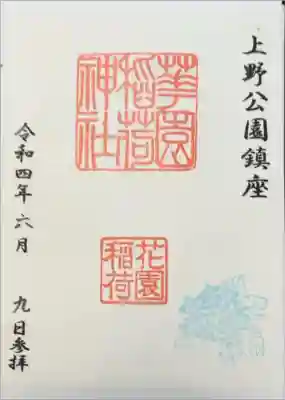 上野公園鎮座
華園
稲荷
神社
花園
稲荷
令和四年六月 九日参拝